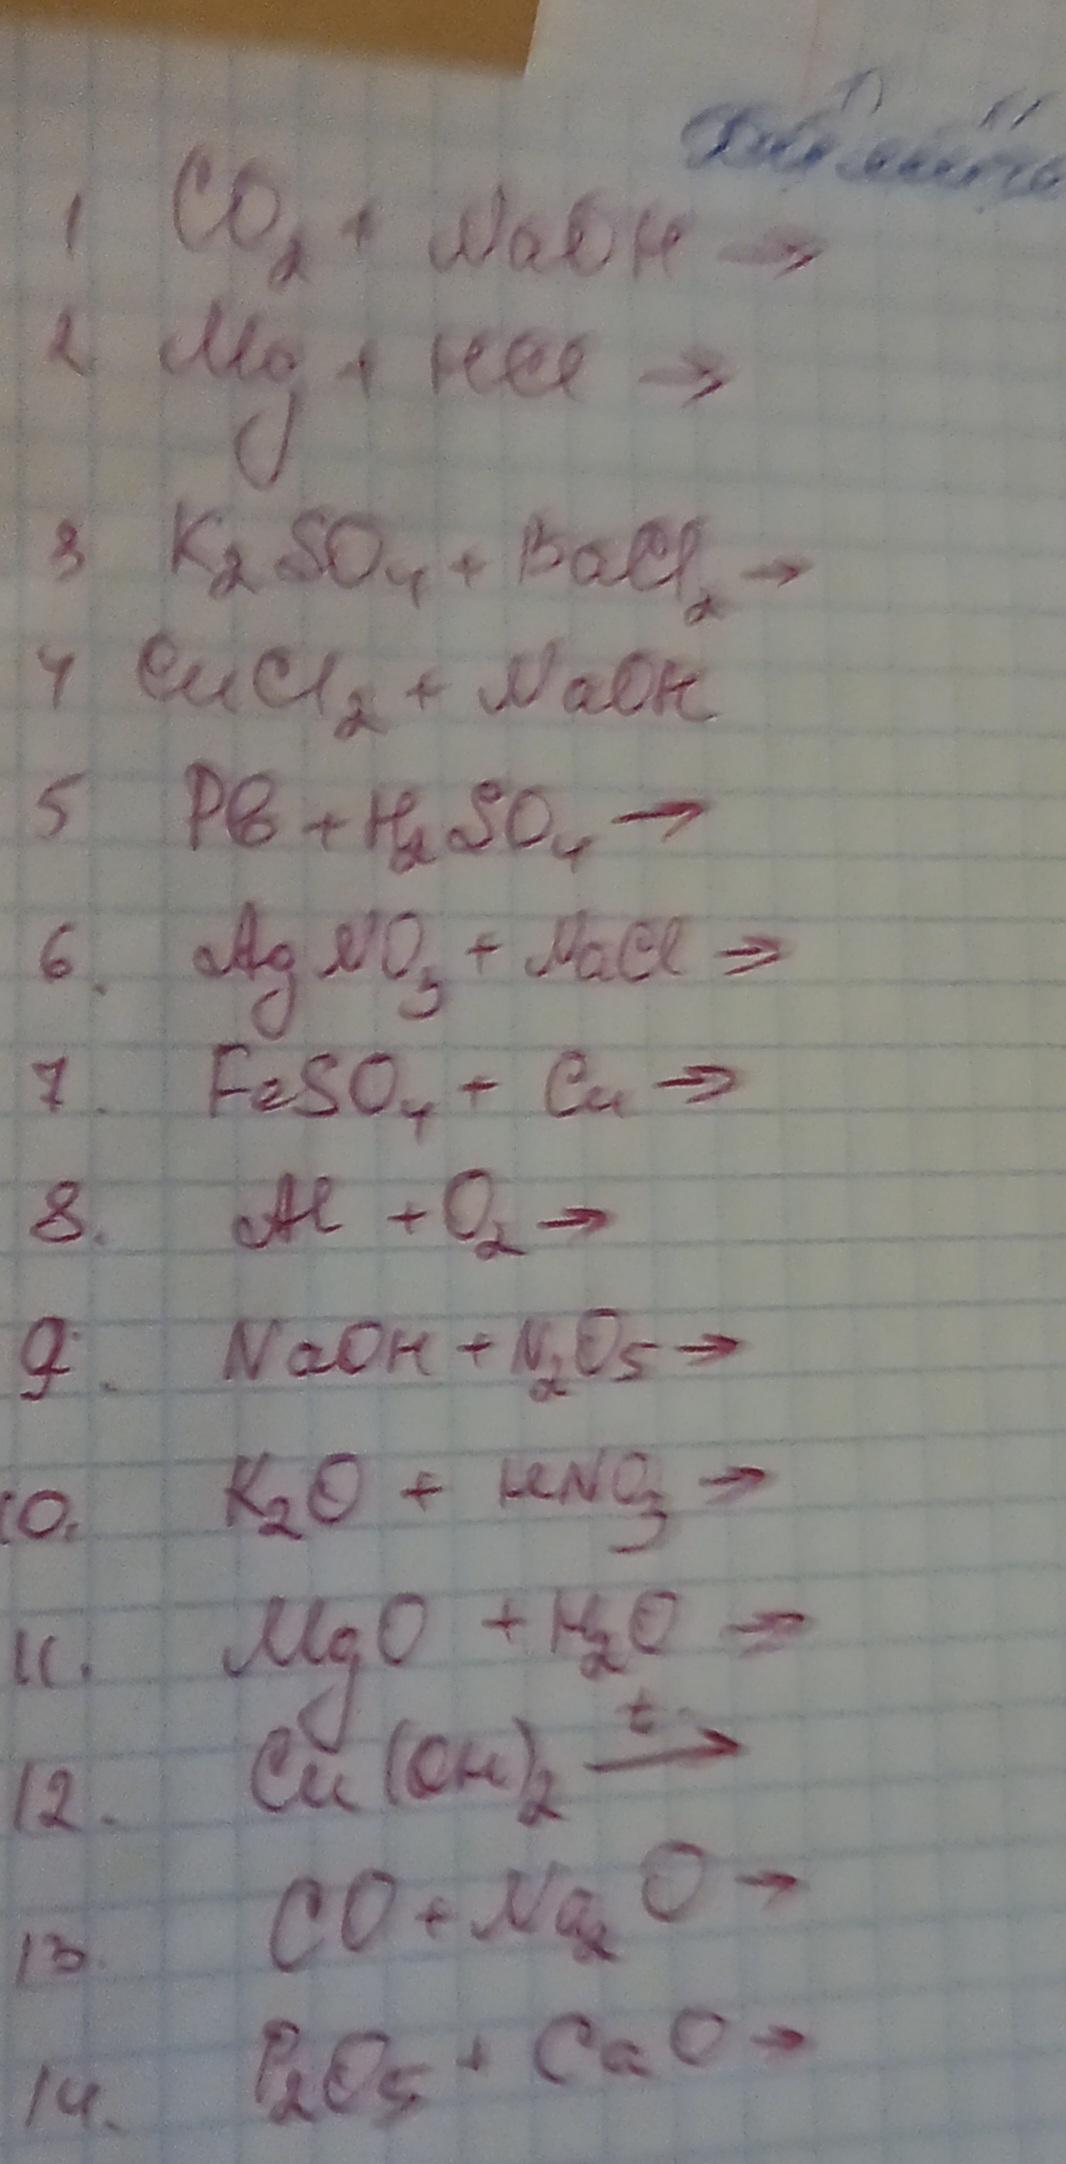 1 CO₂ + NaOH →
2 Mg + HCl →
3 K₂SO₄ + BaCl₂ →
4 CuCl₂ + NaOH
5 Pb + H₂SO₄ →
6. AgNO₃ + NaCl →
7. FeSO₄ + Cu →
8. Al + O₂ →
9. NaOH + N₂O₅ →
10. K₂O + HNO₃ →
11. MgO + H₂O →
12. Cu(OH)₂ t→
13. CO + Na₂O →
14. P₂O₅ + CaO →